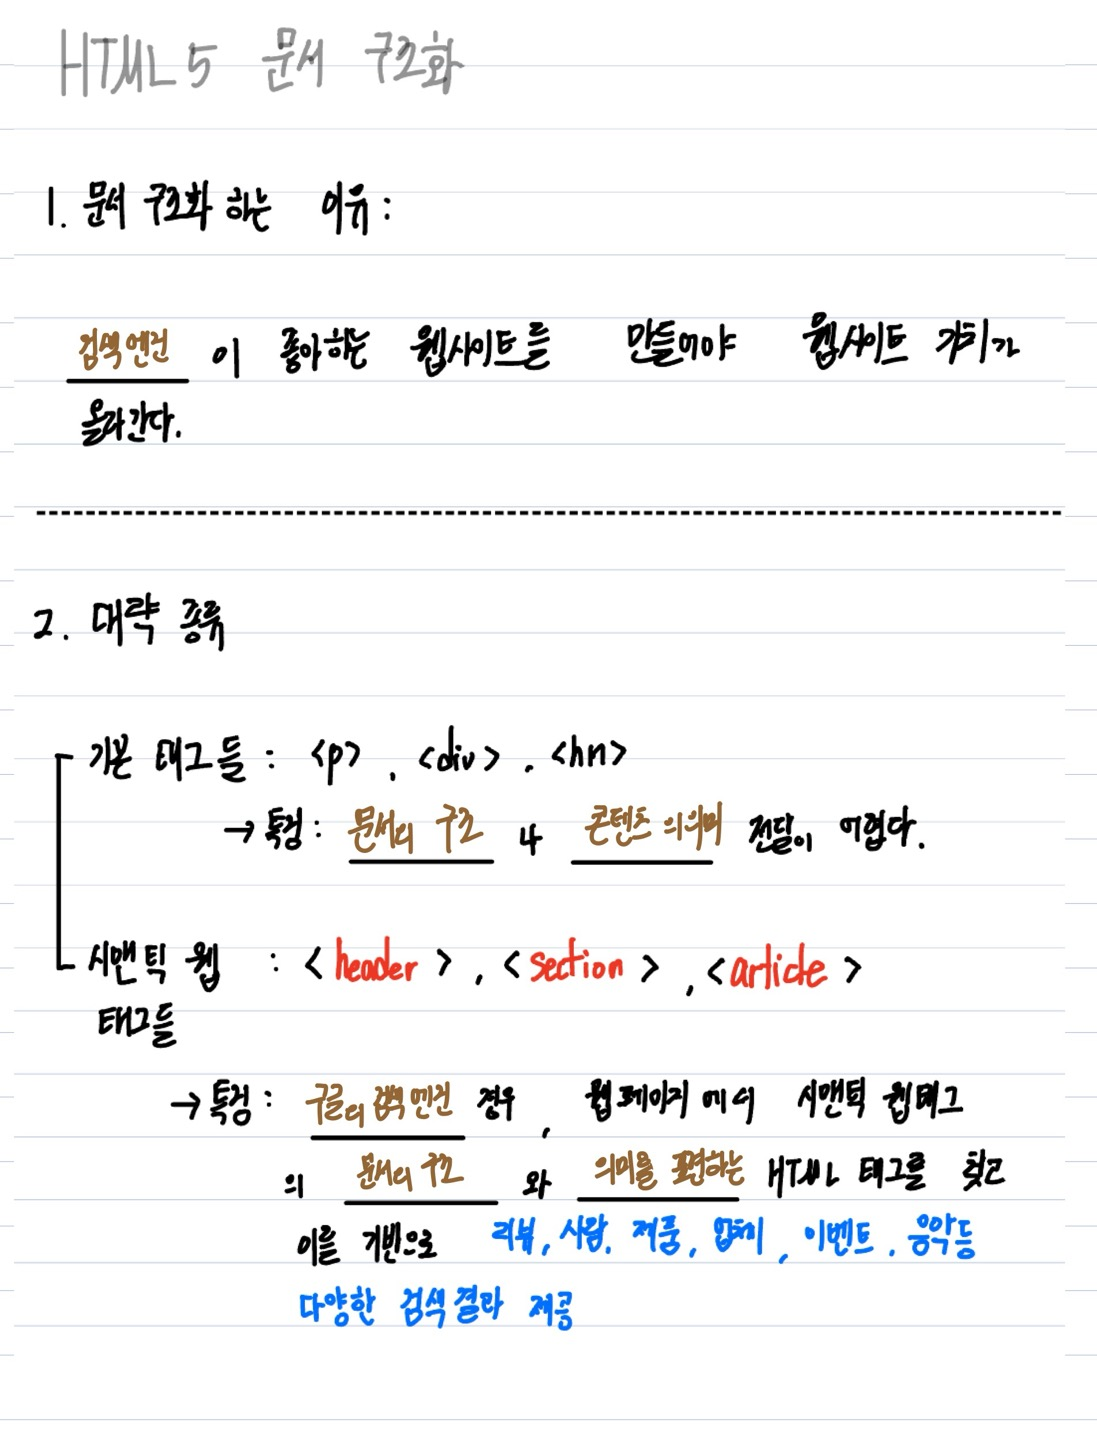 HTML5 문서 구조화
1. 문서 구조화 하는 이유:
검색엔진 이 좋아하는 웹사이트를 만들어야 웹사이트 가치가
올라간다.
2. 대략 종류
기본 태그들 : <p>, <div>, <hn>
→ 특징: 문서의 구조 나 콘텐츠 의 의미 전달이 어렵다.
시맨틱 웹 : <header>, <section>, <article>
태그들
→ 특징: 구글의 검색 엔진 경우, 웹페이지 에서 시맨틱 웹태그
의 문서의 구조 와 의미를 표현하는 HTML 태그를 찾고
이를 기반으로 리뷰, 사람, 제품, 업체, 이벤트, 음악등
다양한 검색결과 제공